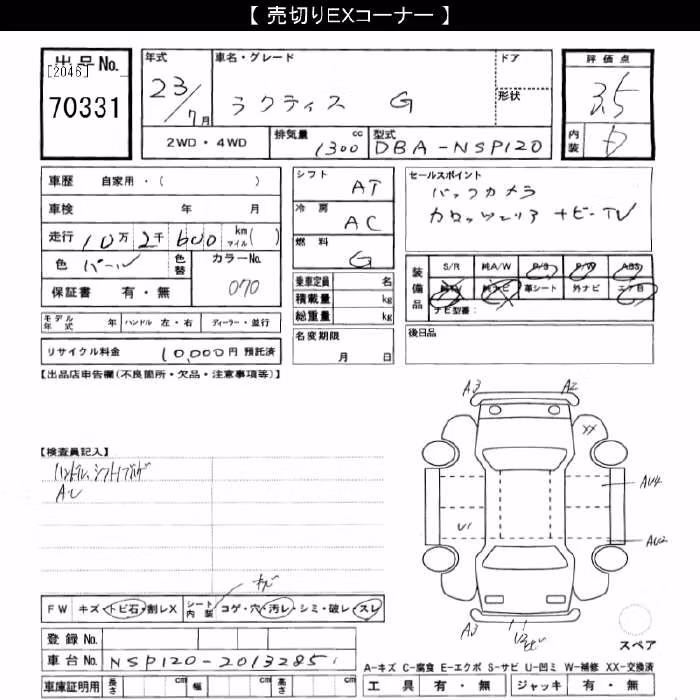 【 売切りEXコーナー 】
出品No.
[2046]
70331
年式 車名・グレード ドア 評価点
23/7月 ラクティス G 形状 3.5
2WD・4WD 排気量 1300 cc 型式 DBA-NSP120 内装 D
車歴 自家用・( )
車検 年 月
走行 10万 2千 600 km マイル ( )
色 パール 色替 カラーNo. 070
保証書 有・無
シフト AT
冷房 AC
燃料 G
乗車定員 名
積載量 kg
総重量 kg
名変期限 月 日
セールスポイント
バックカメラ
カロッツェリア ナビーTV
装備品 S/R 純A/W P/S P/W ABS
純TV 純ナビ 革シート 外ナビ エアB
ナビ型番:
後日品
モデル年式 年 ハンドル 左・右 ディーラー・並行
リサイクル料金 10,000円 預託済
【出品店申告欄(不良箇所・欠品・注意事項等)】
【検査員記入】
ハンドル、シフトノブ
A・U
A3 A2
XX
AU4
U1
AU2
A3
FW キズ・トビ石・割レX シート内装 コゲ・穴・汚レ・シミ・破レ・スレ
登録No.
車台No. NSP120-2013285
スペア
A-キズ C-腐食 E-エクボ S-サビ U-凹ミ W-補修 XX-交換済
車庫証明用 長さ cm 幅 cm 高さ cm 工具 有・無 ジャッキ 有・無